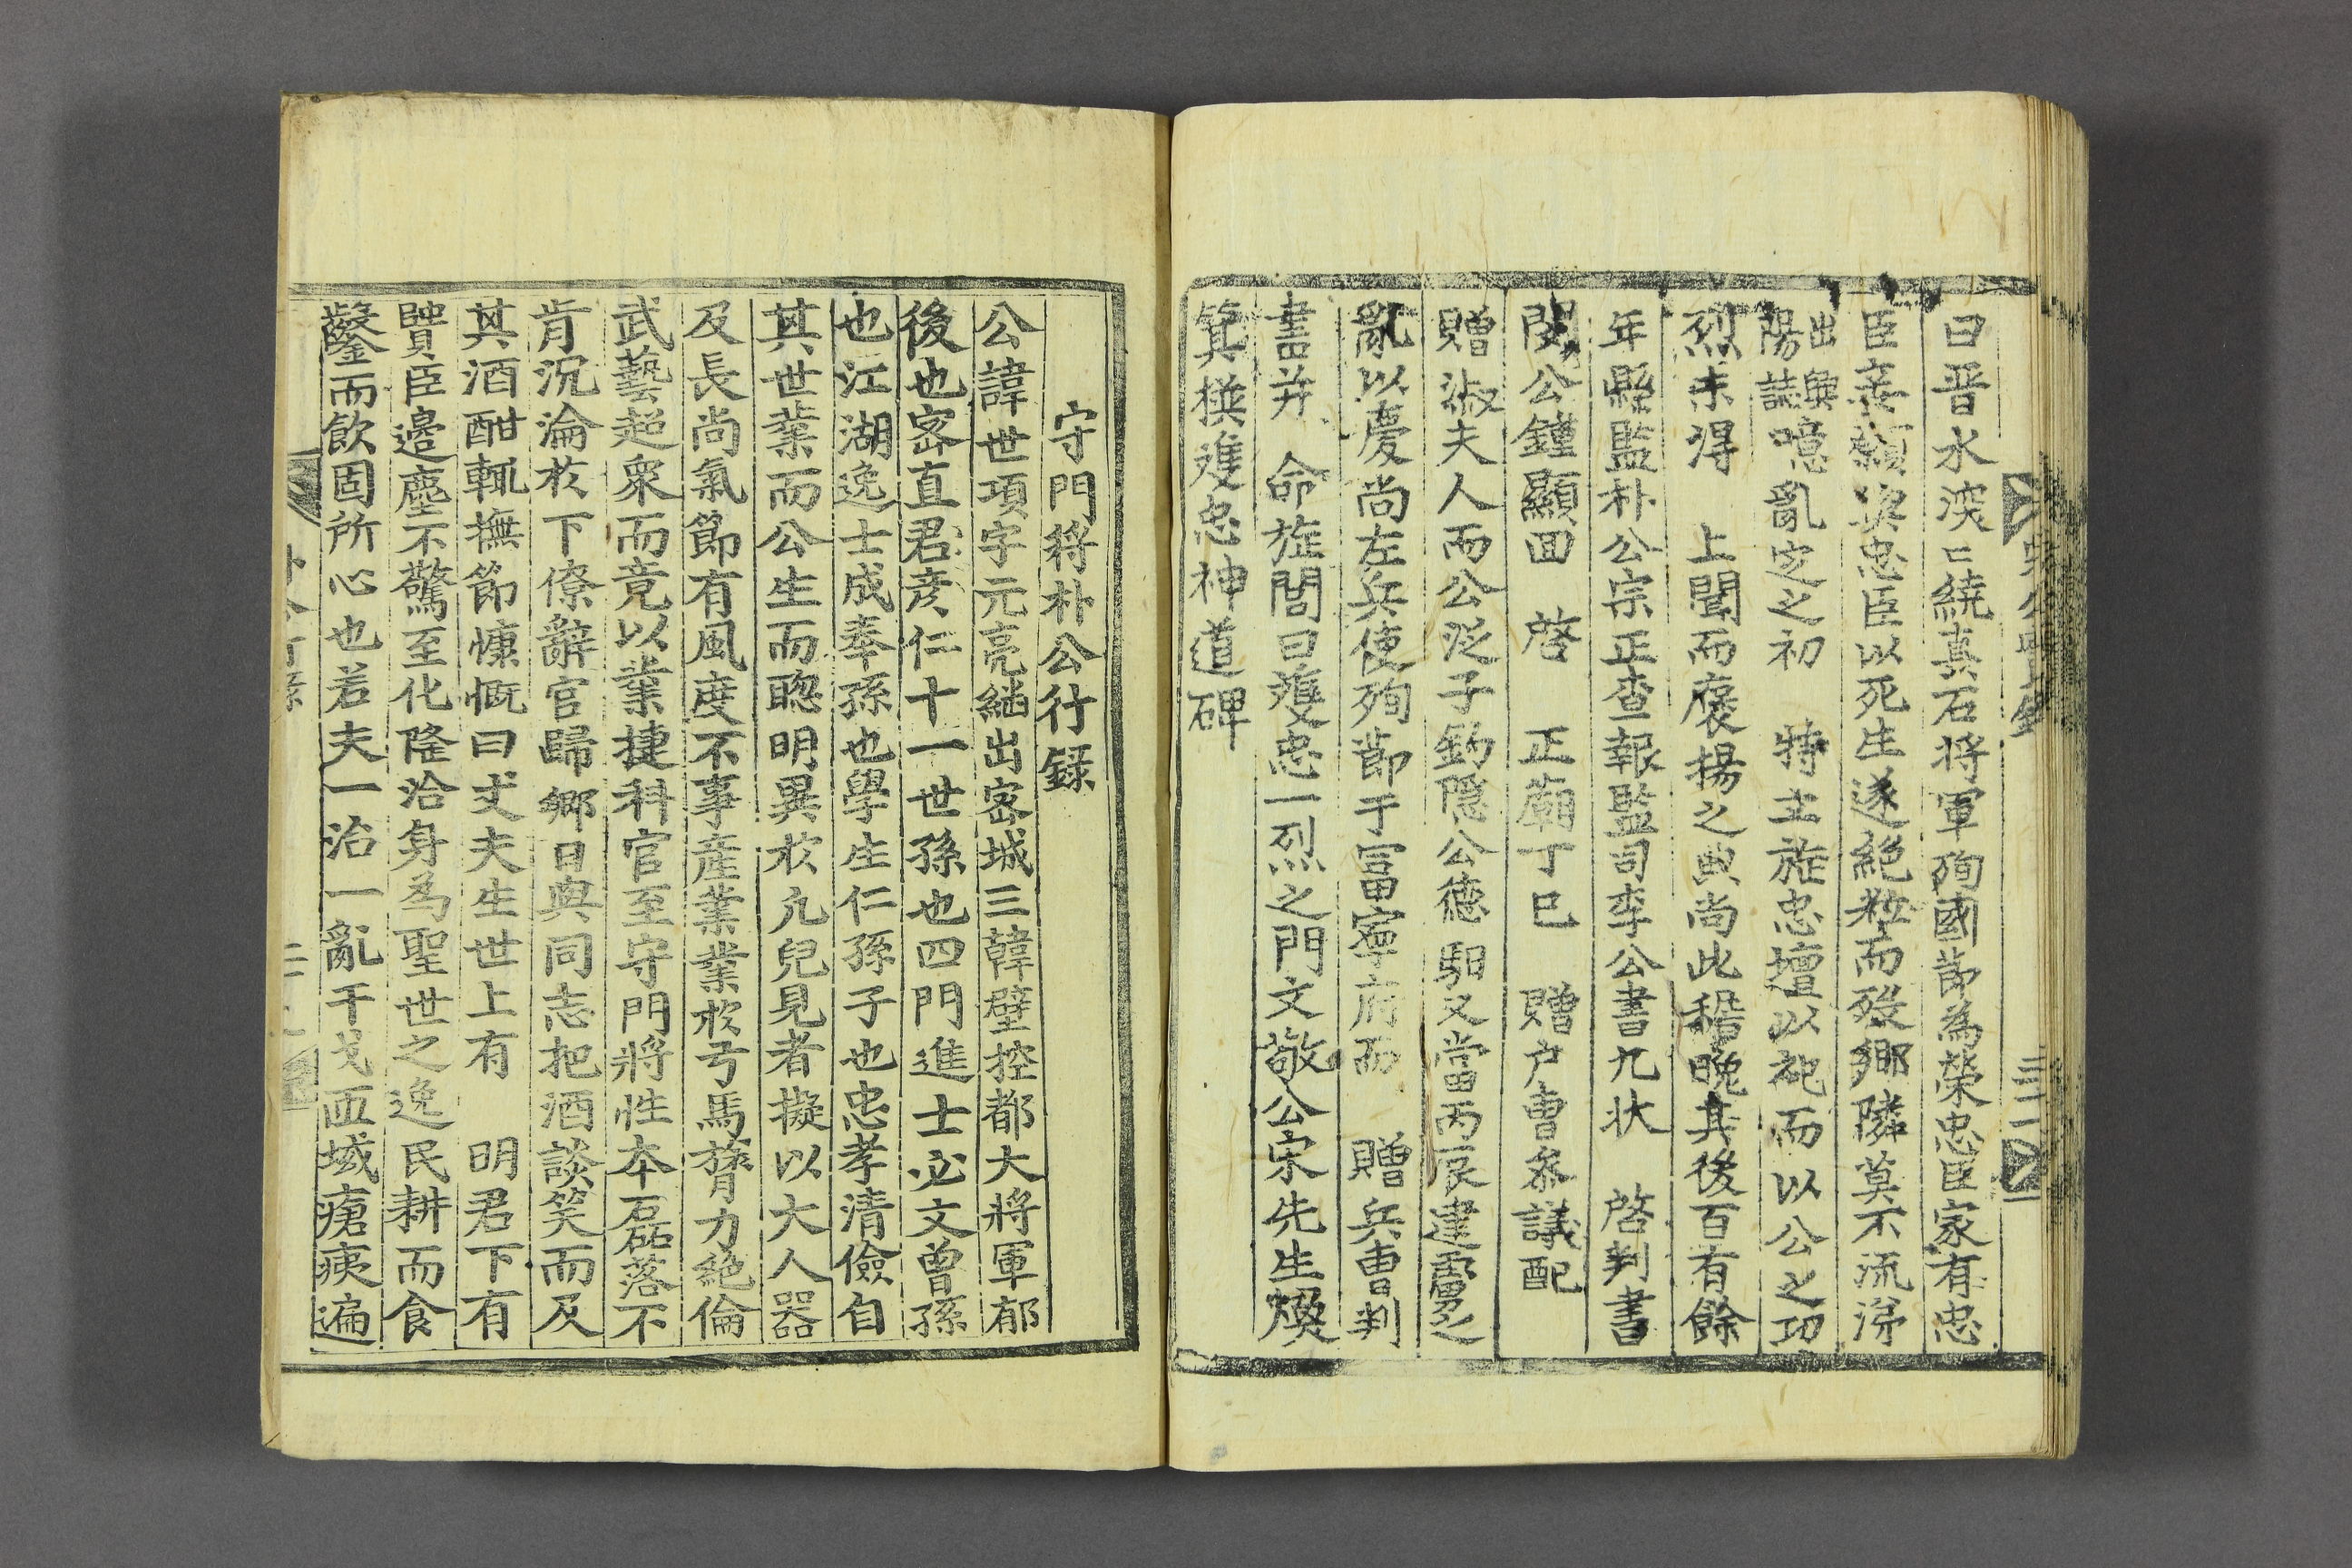 曰晋水溶〻繞真石将軍殉國節為榮忠臣家有忠
臣妻類歿忠臣以死生遂絶粒而歿鄉隣莫不流涕
出奐陽誌噫亂之初 特立旌忠壇以祀而以公之功
烈未得 上聞而褒揚之典尚此稽晚其後百有餘
年縣監朴公宗正查報監司李公書九状 啓判書
閔公鍾顯回 啓 正廟丁巳 贈户曹叅議配
贈淑夫人而公從子鈞隱公德馹又當丙辰建虜之
亂以慶尚左兵使殉節于富寧府而 贈兵曹判
書并 命旌閭曰雙忠一烈之門文敬公宋先生煥
箕撰雙忠神道碑
守門将朴公行録
公諱世項字元亮繼出密城三韓壁控都大将軍郁
後也密直君彦仁十一世孫也四門進士必文曾孫
也江湖逸士成奉孫也學生仁孫子也忠孝清儉自
其世業而公生而聦明異於凢兒見者擬以大人器
及長尚氣節有風度不事産業業於弓馬膂力絶倫
武藝超衆而竟以業捷科官至守門將性本磊落不
肯沉淪於下僚辭官歸鄉日與同志把酒談笑而及
其酒酣輒撫節慷慨曰丈夫生世上有 明君下有
賢臣邉塵不驚至化隆洽身為聖世之逸民耕而食
鑿而飲固所心也若夫一治一亂干戈匝域瘡痍遍